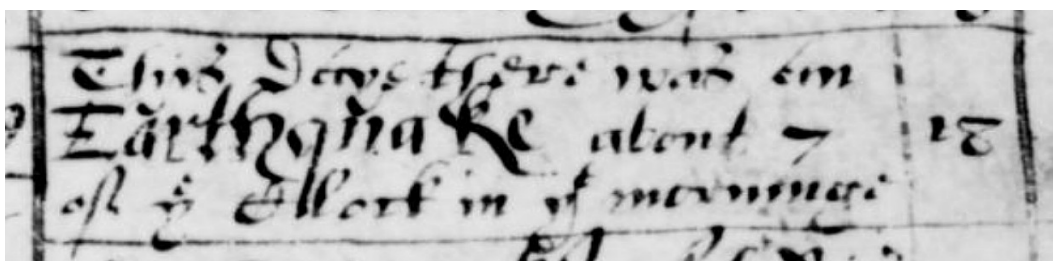 This Daye there was an
Earthquake about 7 18
of ye Clock in ye morninge